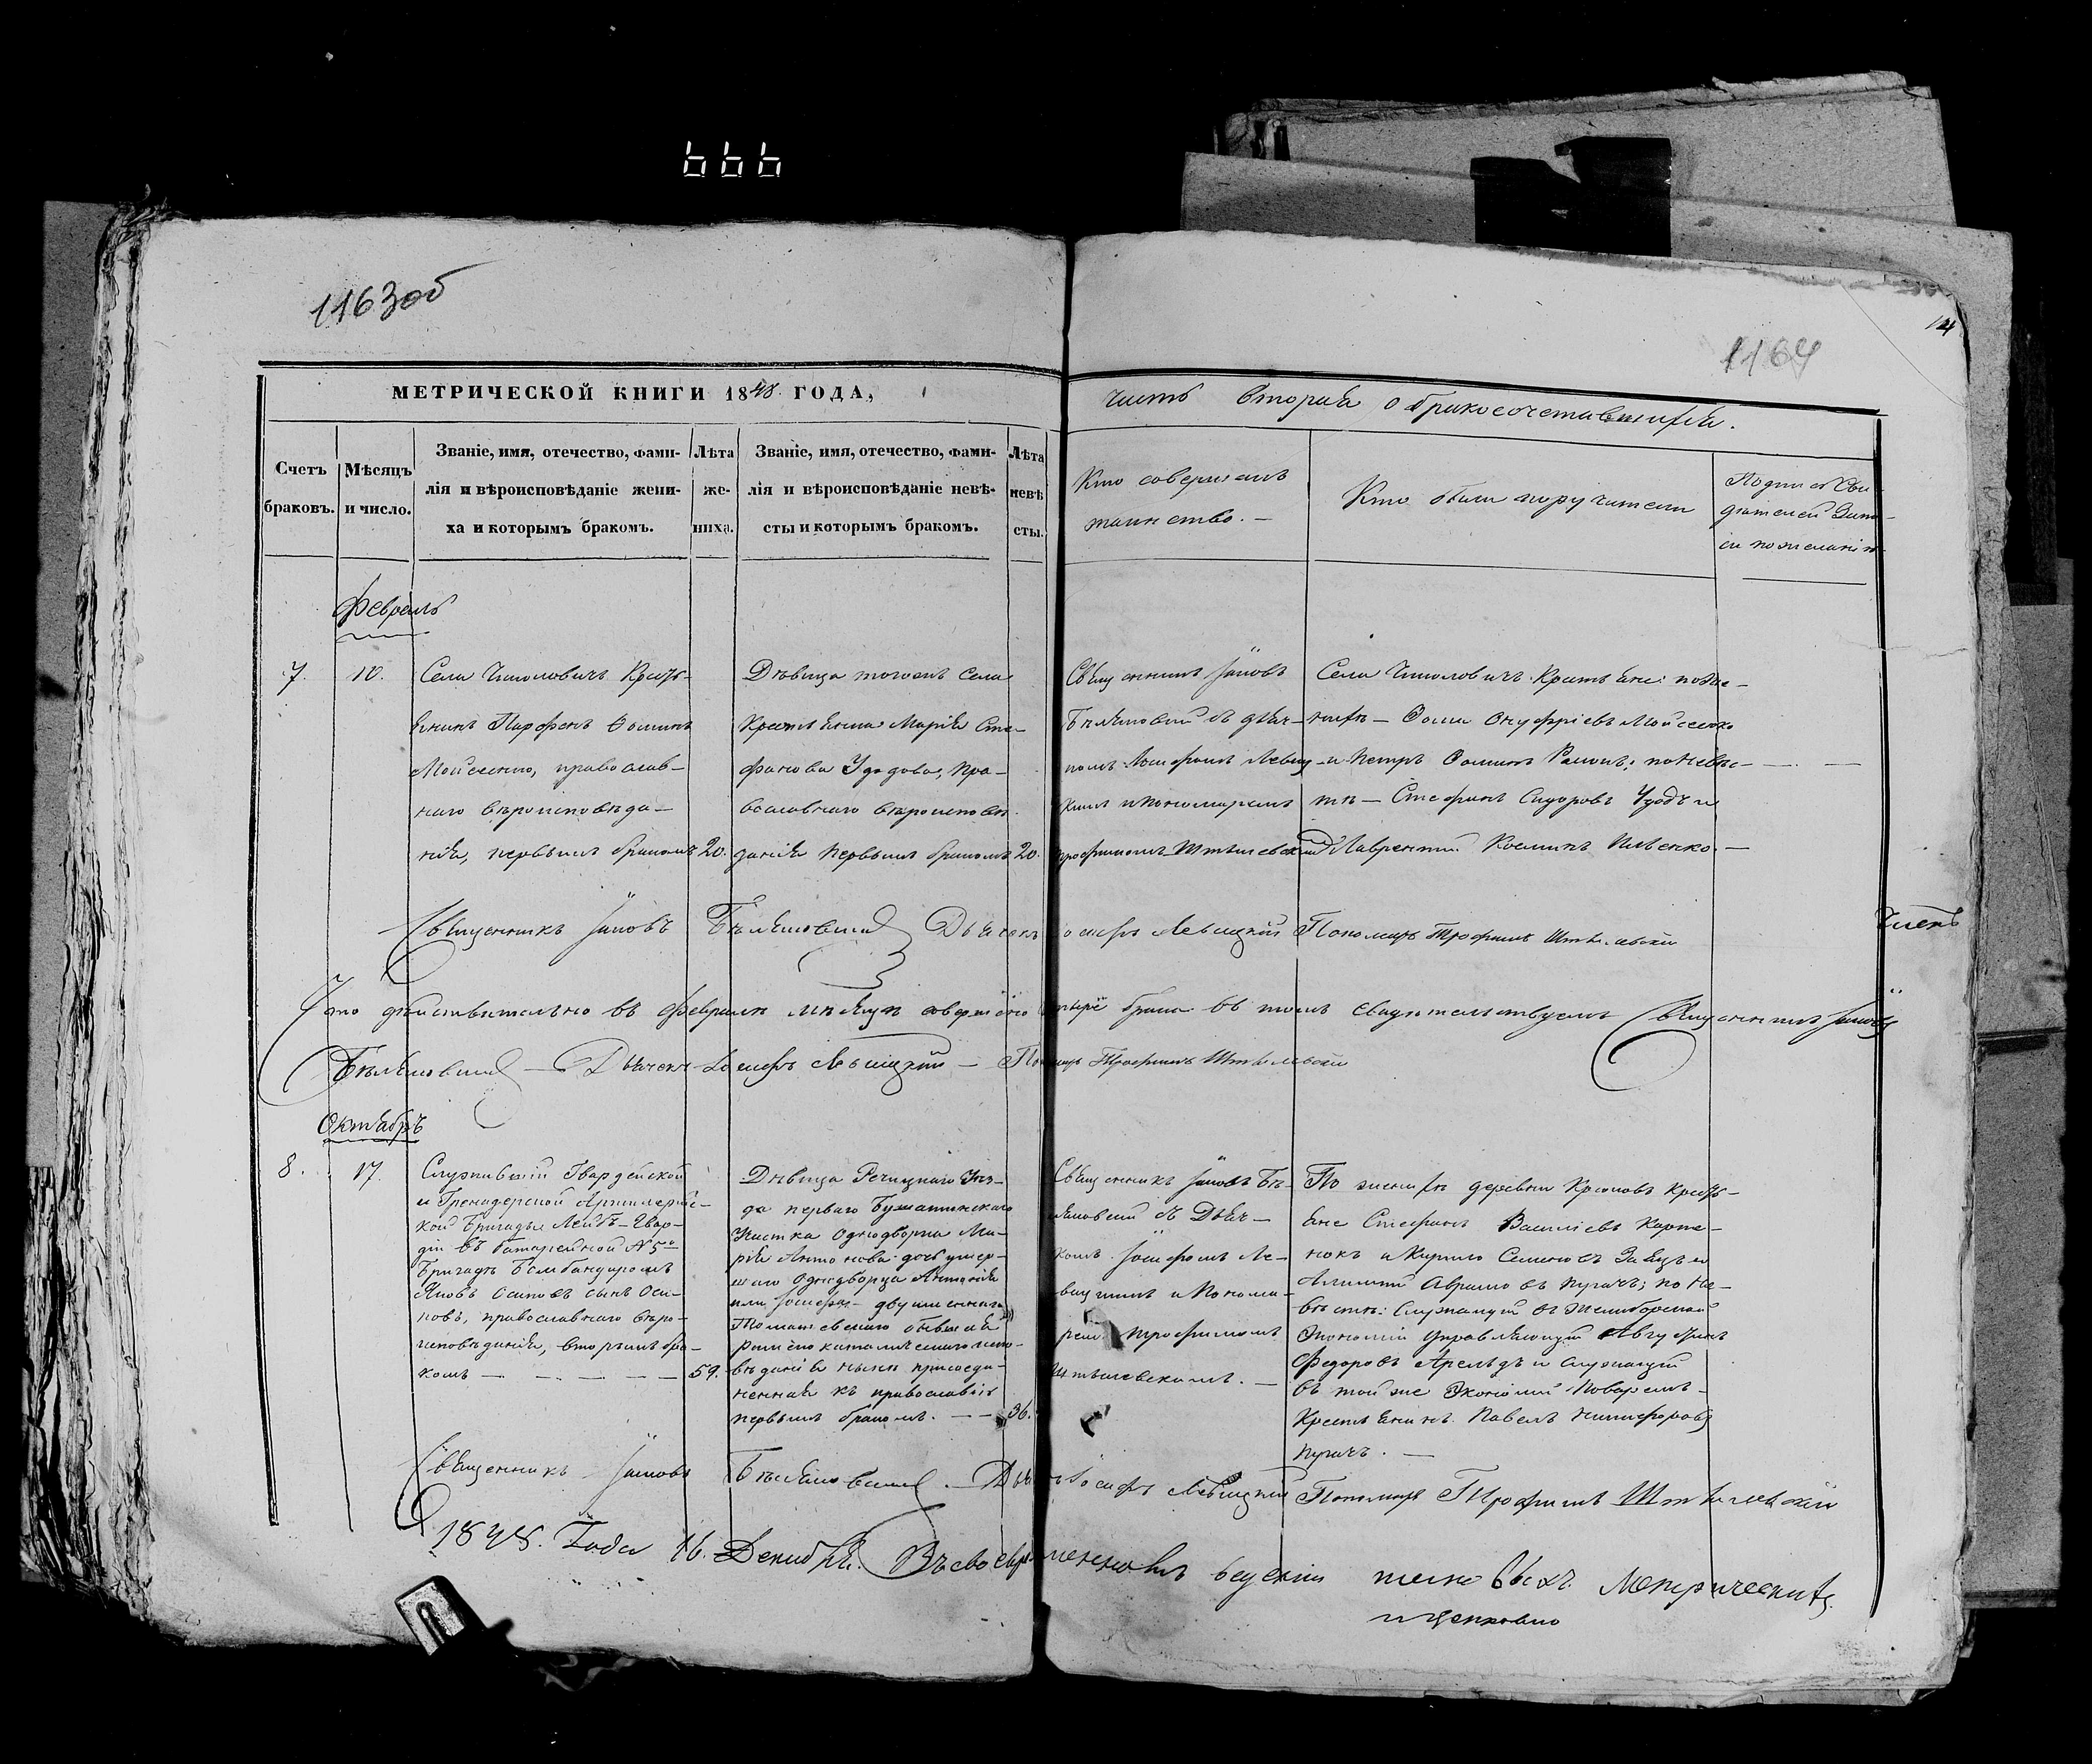 666
1163об
1164
МЕТРИЧЕСКОЙ КНИГИ 1848 ГОДА,
часть вторая о бракосочетавшихся.
Счетъ браковъ.
Мѣсяцъ и число.
Званіе, имя, отечество, фами-
лія и вѣроисповѣданіе жени-
ха и которымъ бракомъ.
Лѣта
же-
ниха.
Званіе, имя, отечество, фами-
лія и вѣроисповѣданіе невѣ-
сты и которымъ бракомъ.
Лѣта
невѣ
сты.
Кто совершалъ
таинство. —
Кто были поручители
февраль
7.
10.
Села Чиколовичъ Кресть-
янинъ Парфенъ Ѳоминъ
Мойсеенко, православ-
наго вѣроисповѣда-
нія, первымъ бракомъ
20.
Дѣвица тогожъ села
Крестьянка Марія Сте-
фанова Удодова, пра-
вославнаго вѣроисповѣ-
данія первымъ бракомъ
20.
Священникъ Іаковъ
съ дьяч-
комъ Іосифомъ Левиц-
кимъ и пономаремъ
Села Чиколовичъ Крестьяне: по же-
нихѣ — Ѳома Онуфріевъ Мойсеенко
и Петръ Ѳоминъ по невѣс-
тѣ — Стефанъ Сидоровъ Удодъ и
Лаврентій
Священникъ Іаковъ
Дьячекъ Іосифъ Левицкій Пономарь Трофимъ
Что дѣйствительно въ февралѣ мѣсяцѣ совершено брака въ томъ свидѣтельствуемъ Священникъ Іаковъ
Дьячекъ Іосифъ Левицкій — Пономарь Трофимъ
Октябрь
8.
17.
Служившій Гвардейской
и Гренадерской Артиллерійс-
кой бригады Лейбъ-Гвар-
діи въ батарейной №5й
бригадѣ бомбандиромъ
Яковъ Осиповъ сынъ Оси-
повъ, православнаго вѣро-
исповѣданія, вторымъ бра-
комъ
59.
Дѣвица Речицкаго Уѣз-
да перваго
Участка Однодворка Ма-
рія Антонова дочь умер-
шаго Однодворца Антонія
или Іосифа — двуименнаго
бывшая
римско католическаго испо-
вѣданія нынѣ присоеди-
ненная къ православію
первымъ бракомъ. — —
36.
Священникъ Іаковъ
съ Дьяч-
комъ Іосифомъ Ле-
вицкимъ и Понома-
ремъ Трофимомъ
По женихѣ деревни Крюковъ Кресть-
яне Стефанъ Васильевъ Карпе-
нокъ и Кирило Семеновъ Заяцъ и
Аврамовъ Пугачъ; по не-
вѣстѣ: Служащій въ
Экономіи Управляющій
Федоровъ и служащій
въ той же Экономіи Поваромъ
Крестьянинъ Павелъ Никифоровъ
Пугачъ. —
Священникъ Іаковъ
Іосифъ Левицкій Пономарь Трофимъ
1848. Года 16. Декабря. Въ своевременномъ веденіи таковыхъ Метрическихъ